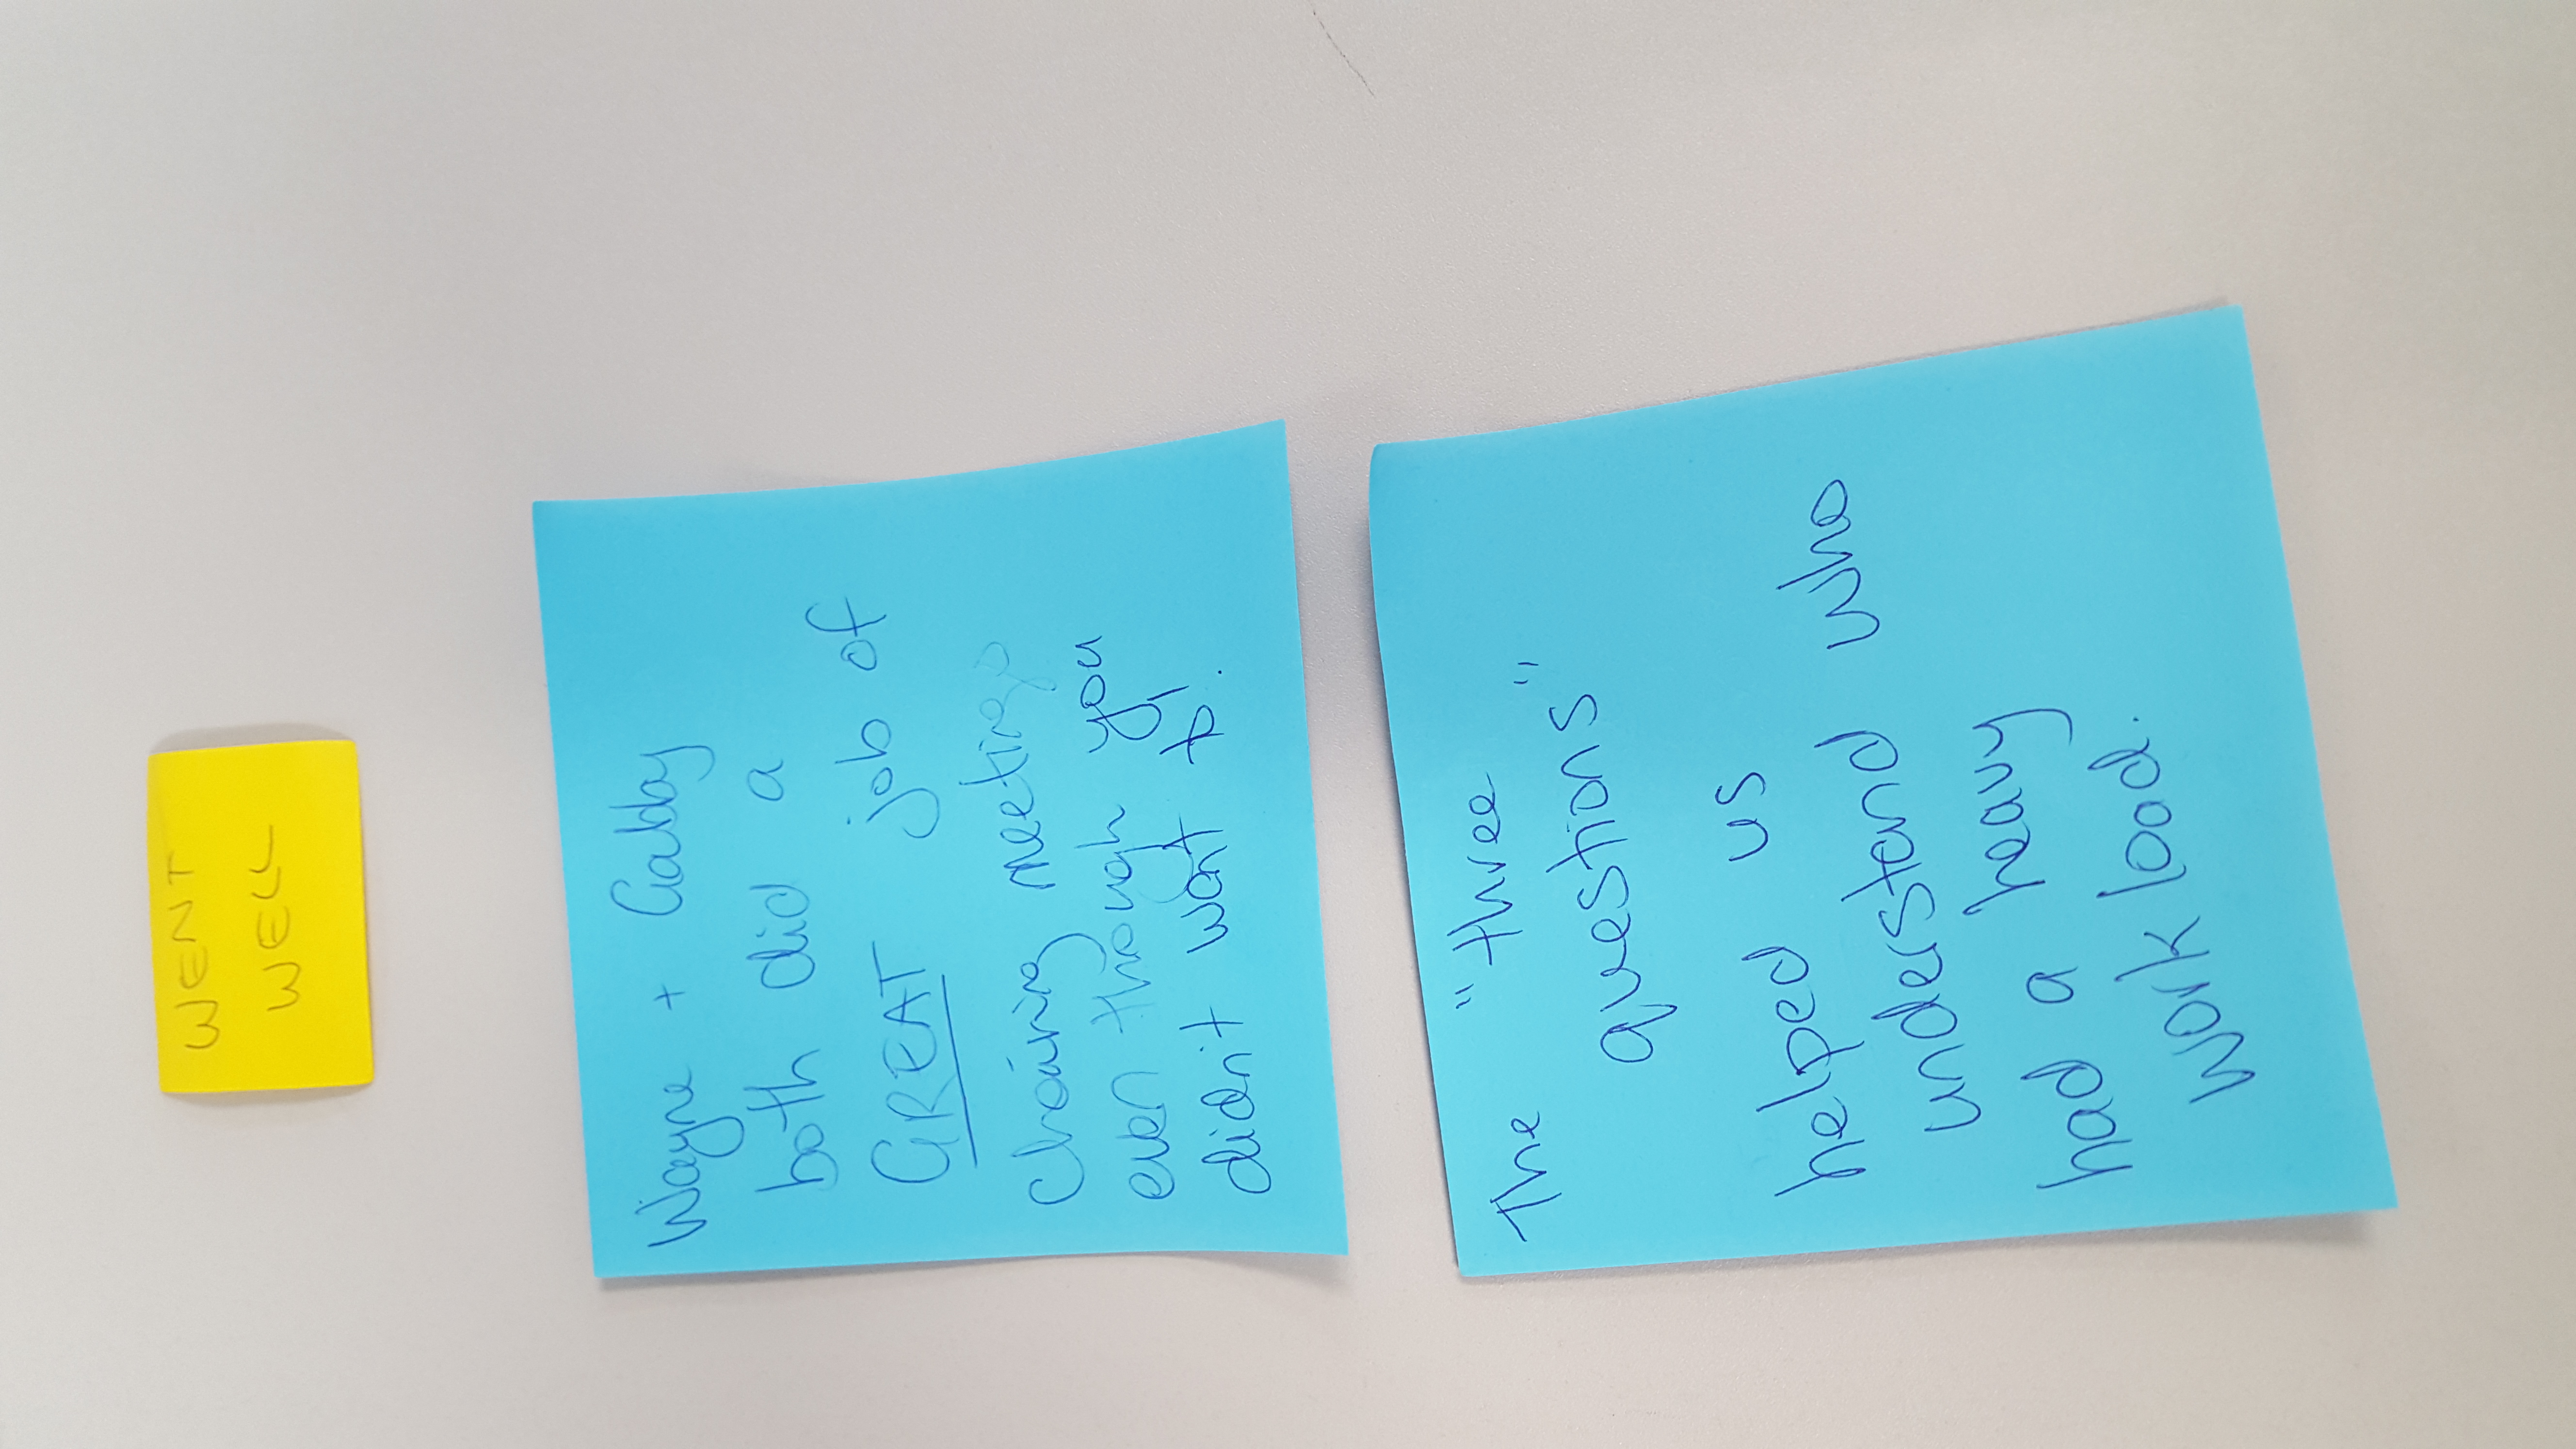 WENT
WELL
Wayne + Gabby
both did a
GREAT job of
Chairing meetings
even though you
didn't want to!
The "three
questions"
helped us
understand who
had a heavy
work load.